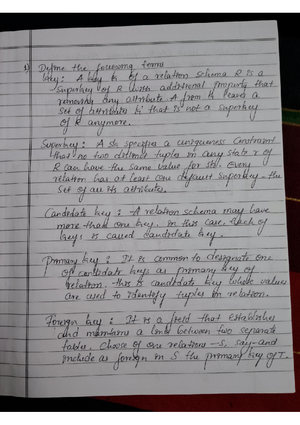 1) Define the following terms
Key : A key K of a relation schema R is a
superkey of R with additional property that
removing any attribute A from K leaves a
set of attributes K' that is not a superkey
of R anymore.
Superkey : A SK specifies a uniqueness constraint
that no two distinct tuples in any state r of
R can have the same value for SK. Every
relation has at least one default superkey - the
set of all its attribute.
Candidate key : A relation schema may have
more than one key. in this case. Each of
keys is called candidate key.
Primary key : It is common to designate one
of candidate keys as primary key of
relation. this is candidate key whose values
are used to identify tuples in relation.
Foreign key : It is a field that establishes
and maintains a link between two separate
tables. Choose of one relations - S, say - and
include as foreign in S the primary key of T.